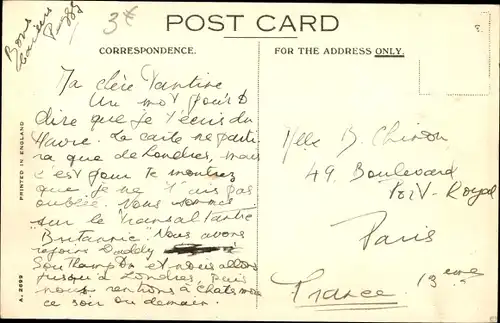 Bons
Baisers
3
POST CARD
CORRESPONDENCE.
FOR THE ADDRESS ONLY.
Ma chère Tantine
Un mot pour te
dire que je t'écris du
Havre. La carte ne parti
ra que de Londres, mais
c'est pour te montrer
que je ne t'ais pas
oubliée. Nous sommes
sur le transatlantic
"Britannic". Nous avons
rejoint Daddy
Southampton et nous allons
jusque à Londres, puis
nous rentrons à
ce soir ou demain.
Melle B. Chinon
49. Boulevard
Port-Royal
Paris
13eme
France
PRINTED IN ENGLAND
A. 2699